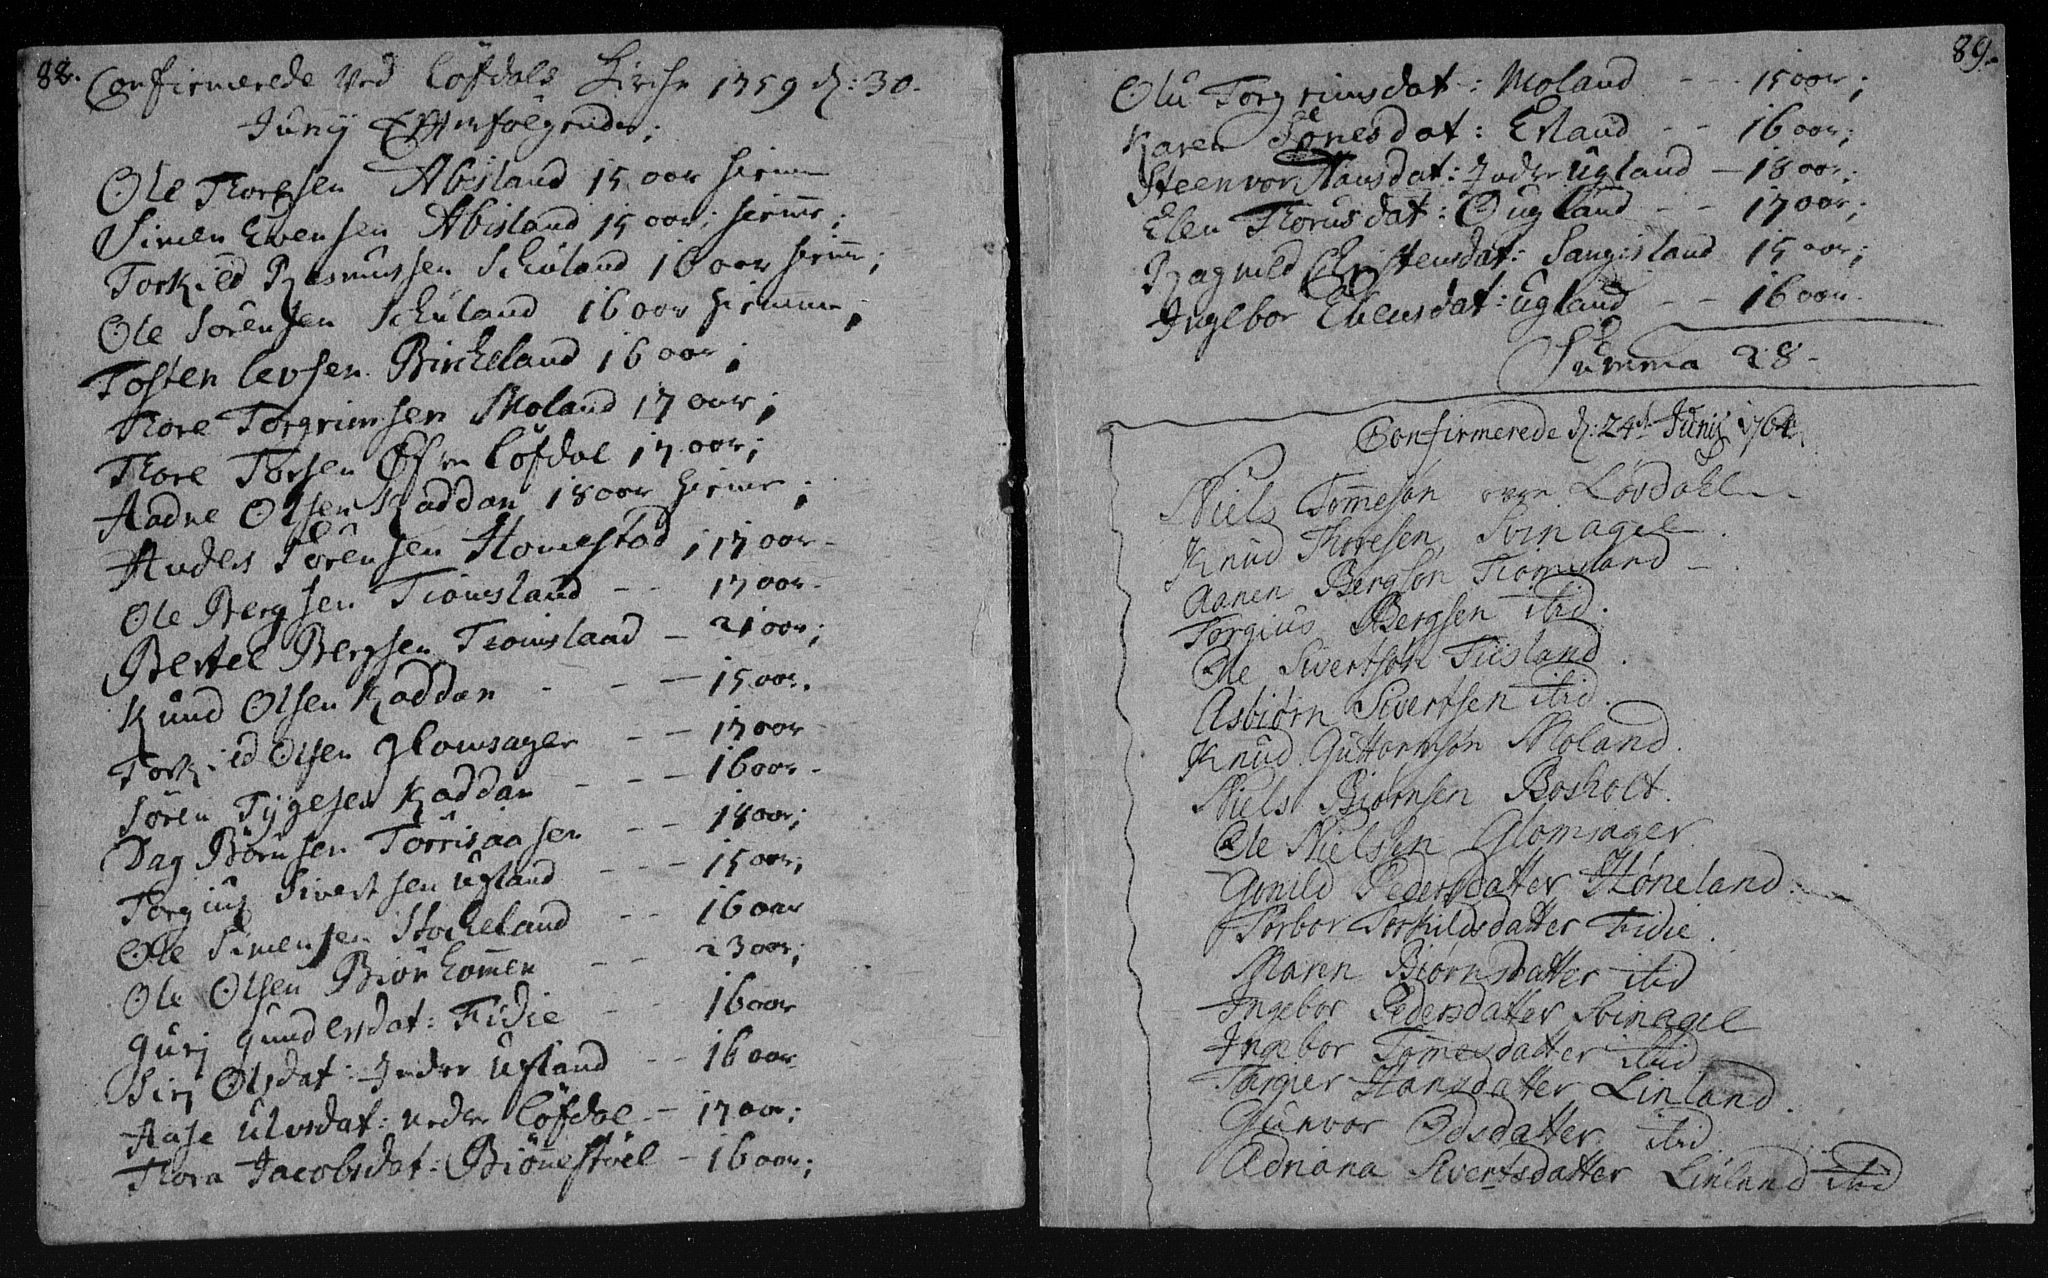 88.
Confirmerede Ved Löfdals Kirche 1759 d: 30.
Junij Efterfølgende;
Ole Thoresen Abisland 15 aar
Simen Evensen Abisland 15 aar;
Torkied Rasmussen Schuland 16 aar
Ole Sørensen Schuland 16 aar
Tosten Levsen Birkeland 16 aar;
Thore Torgrimsen Moland 17 aar;
Thore Torsen Øfre Löfdal 17 aar;
Aadne Olsen Kaddan 18 aar
Anders Sørensen Homestad; 17 aar
Ole Bergsen Tiomsland - - 17 aar
Bertel Bergsen Tiomsland - 21 aar;
Knud Olsen Kaddan - - - 15 aar.
Torkied Olsen Glomsager - - 17 aar
Søren Tygesen Kaddan - - - 16 aar
Dag Børnsen Torrisaasen - - 18 aar;
Torgius Sivertsen Ugland - - 15 aar;
Ole Simensen Stockeland - - 16 aar
Ole Olsen Biørkomen - - 23 aar;
Gurj Gundersdat: Fidie - 16 aar
Sirj Olsdat: Indre Ugland - - 16 aar
Aase Ulvsdat: Nedre Löfdal - 17 aar;
Thora Jacobsdat: Biönestöel - 16 aar;
89.
Olu Torgrimsdat: Moland - - 15 aar;
Karen Tönesdat: Evland - - 16 aar;
Steenvor Hansdat: Indre Ugland - 18 aar;
Elen Thorusdat: Ougland - - 17 aar;
Ragnild Christensdat: Sangisland 15 aar;
Ingebor Evensdat: Ugland - - 16 aar.
Summa 28-
Confirmerede d: 24de Junij 1764.
Niels Tommesøn øvre Løvdahl
Knud Thoresen, Svinagel
Aanen Bergsøn Tiomsland
Torgius Bergsen ibid.
Ole Sivertsøn Fiisland.
Asbiørn Sivertsen ibid.
Knud Guttormsøn Moland.
Niels Biørnsen Bosholt.
Ole Nielsen Glomsager.
Gonild Pedersdatter Høneland.
Torbor Torkildsdatter Fidie.
Maren Biørnsdatter ibid
Ingebor Pedersdatter Svinagel
Ingebor Tommesdatter ibid
Torgier Hansdatter Linland.
Gunvor Odsdatter ibid
Adriana Sivertsdatter Linland ibid